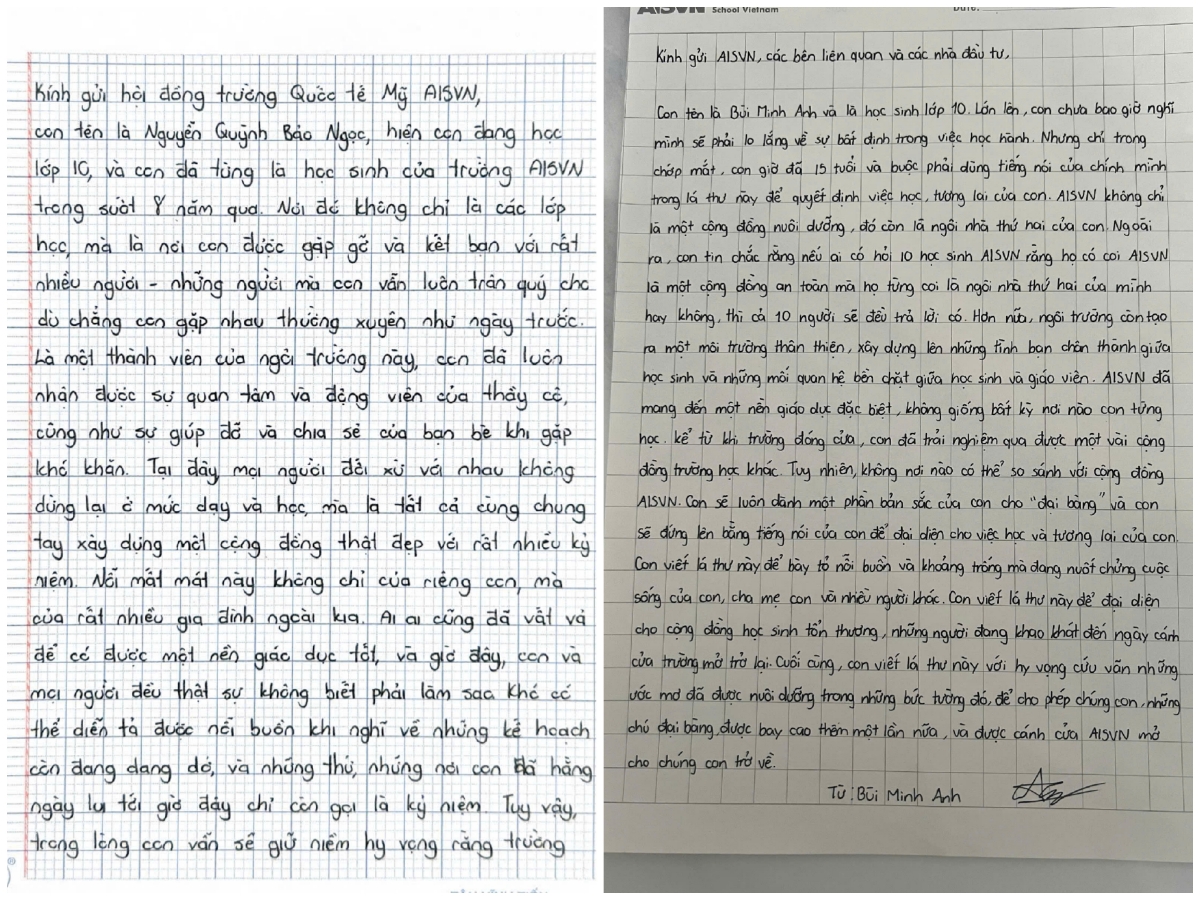 Kính gửi hội đồng trường Quốc tế Mỹ AISVN,
con tên là Nguyễn Quỳnh Bảo Ngọc, hiện con đang học
lớp 10, và con đã từng là học sinh của trường AISVN
trong suốt 8 năm qua. Nơi đó không chỉ là các lớp
học, mà là nơi con được gặp gỡ và kết bạn với rất
nhiều người - những người mà con vẫn luôn trân quý cho
dù chẳng còn gặp nhau thường xuyên như ngày trước.
Là một thành viên của ngôi trường này, con đã luôn
nhận được sự quan tâm và động viên của thầy cô,
cũng như sự giúp đỡ và chia sẻ của bạn bè khi gặp
khó khăn. Tại đây, mọi người đối xử với nhau không
dừng lại ở mức dạy và học, mà là tất cả cùng chung
tay xây dựng một cộng đồng thật đẹp với rất nhiều kỷ
niệm. Nỗi mất mát này không chỉ của riêng con, mà
của rất nhiều gia đình ngoài kia. Ai ai cũng đã vất vả
để có được một nền giáo dục tốt, và giờ đây, con và
mọi người đều thật sự không biết phải làm sao. Khó có
thể diễn tả được nỗi buồn khi nghĩ về những kế hoạch
còn đang dang dở, và những thứ, những nơi con đã hằng
ngày lui tới giờ đây chỉ còn gọi là kỷ niệm. Tuy vậy,
trong lòng con vẫn sẽ giữ niềm hy vọng rằng trường
AISVN School Vietnam
Date:
Kính gửi AISVN, các bên liên quan và các nhà đầu tư,
Con tên là Bùi Minh Anh và là học sinh lớp 10. Lớn lên, con chưa bao giờ nghĩ
mình sẽ phải lo lắng về sự bất định trong việc học hành. Nhưng chỉ trong
chớp mắt, con giờ đã 15 tuổi và buộc phải dùng tiếng nói của chính mình
trong lá thư này để quyết định việc học, tương lai của con. AISVN không chỉ
là một cộng đồng nuôi dưỡng, đó còn là ngôi nhà thứ hai của con. Ngoài
ra, con tin chắc rằng nếu ai có hỏi 10 học sinh AISVN rằng họ có coi AISVN
là một cộng đồng an toàn mà họ từng coi là ngôi nhà thứ hai của mình
hay không, thì cả 10 người sẽ đều trả lời có. Hơn nữa, ngôi trường còn tạo
ra một môi trường thân thiện, xây dựng lên những tình bạn chân thành giữa
học sinh và những mối quan hệ bền chặt giữa học sinh và giáo viên. AISVN đã
mang đến một nền giáo dục đặc biệt, không giống bất kỳ nơi nào con từng
học. kể từ khi trường đóng cửa, con đã trải nghiệm qua được một vài cộng
đồng trường học khác. Tuy nhiên, không nơi nào có thể so sánh với cộng đồng
AISVN. Con sẽ luôn dành một phần bản sắc của con cho "đại bàng" và con
sẽ đứng lên bằng tiếng nói của con để đại diện cho việc học và tương lai của con.
Con viết lá thư này để bày tỏ nỗi buồn và khoảng trống mà đang nuốt chửng cuộc
sống của con, cha mẹ con và nhiều người khác. Con viết lá thư này để đại diện
cho cộng đồng học sinh tổn thương, những người đang khao khát đến ngày cánh
cửa trường mở trở lại. Cuối cùng, con viết lá thư này với hy vọng cứu vãn những
ước mơ đã được nuôi dưỡng trong những bức tường đó, để cho phép chúng con, những
chú đại bàng, được bay cao thêm một lần nữa, và được cánh cửa AISVN mở
cho chúng con trở về.
Từ: Bùi Minh Anh